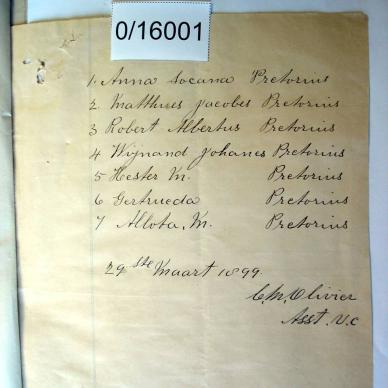 0/16001
1. Anna Socana Pretorius
2 Matthues Jacobes Pretorius
3 Robert Albertus Pretorius
4 Wijnand Johanes Pretorius
5 Hester M. Pretorius
6 Gertrueda Pretorius
7 Allota, M. Pretorius
29ste Maart 1899.
C.M. Olivier
Asst. V.C